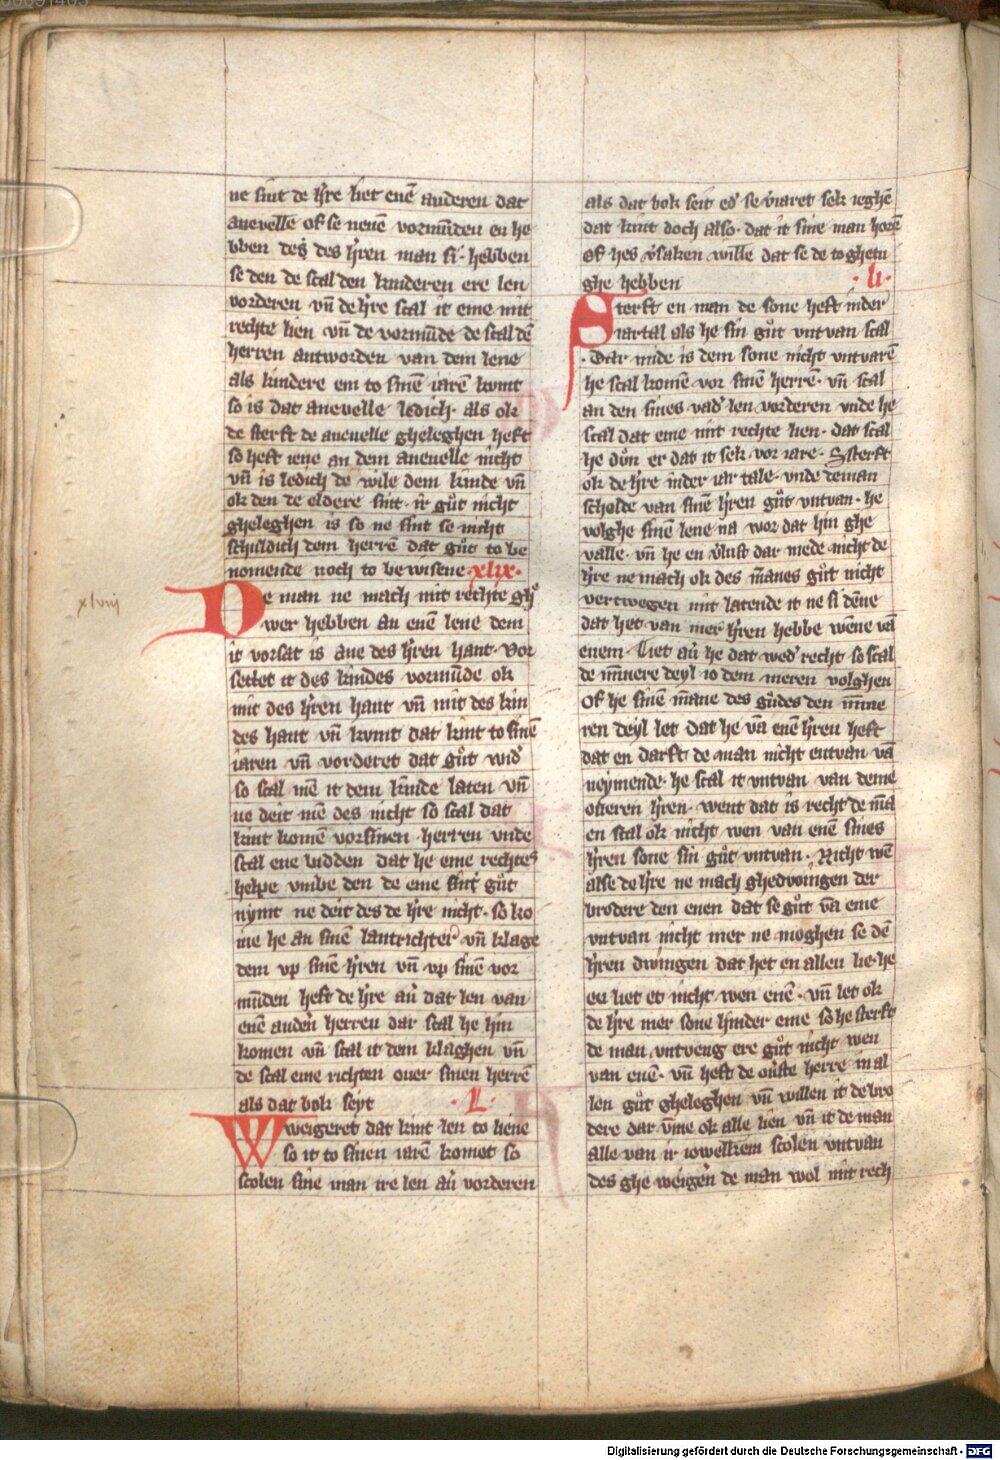 ne sint de h̄re liet enē anderen dat
anevelle of se nenē vormūnden en he
bben des des h̄ren man si · hebben
se den de scal den kinderen ere len
vorderen vn̄ de h̄re scal it eme mit
rechte lien vn̄ de vormūde de scal dē
herren antworden van dem lene
als kindere em to sinē iarē kvmt
so is dat anevelle ledich · als ok
de sterft de anevelle gheleghen heft
so heft iene an dem anevelle nicht
vn̄ is ledich de wile dem kinde vn̄
ok den de eldere sint · ir gůt nicht
gheleghen is so ne sint se nicht
schuldich dem herrē dat gůt to be
nomende noch to bewisene · xlix ·
De man ne mach mit rechte ghe
wer hebben an enē lene dem
it vorsat is ane des h̄ren hant · Vor
settet it des kindes vormūde ok
mit des h̄ren hant vn̄ mit des kin
des hant vn̄ kvmt dat kint to sinē
iaren vn̄ vorderet dat gůt wid᷒
so scal mē it dem kinde laten vn̄
ne deit mē des nicht so scal dat
kint komē vor sinen herren vnde
scal ene bidden dat he eme rechtes
helpe vmbe den de eme sint gůt
nymt ne deit des de h̄re nicht · so ko
me he an sinē lantrichter vn̄ klage
dem vp sinē h̄ren vn̄ vp sinē vor
mūden heft de h̄re av̄ dat len van
enē anden̄ herren dar scal he hin
komen vn̄ scal it dem klaghen vn̄
de scal eme richten over sinen herrē
als dat bok seyt · L ·
Weigeret dat kint len to liene
so it to sinen iarē komet so
scolen sine man ire len av̄ vorderen
als dat bok seit ed᷒ se v̄iaret sek ieghē
dat kint doch also · dat it sine man horē
of hes v̄saken wille dat se de to ghetu
ghe hebben · li ·
Sterft en man de sone heft inder
iartal als he sin gůt vntvan scal
· Dar mide is dem sone nicht vntvarē
he scal komē vor sinē herrē · vn̄ scal
an den sines vad᷒ len vorderen vnde he
scal dat eme mit rechte lien · dat scal
he důn er dat it sek vor iare · Ssterft
ok de h̄re inder iar tale · vnde de man
scholde van sinē h̄ren gůt vntvan · he
volghe sinē lene na wor dat hin ghe
valle · vn̄ he en v̄lust dar mede nicht de
h̄re ne mach ok des māues gůt nicht
vertwegen mit latende it ne si dēne
dat het van mer h̄ren hebbe wēne vā
enem · Liet av̄ he dat wed᷒ recht so scal
de mīnere deyl io dem meren volghen
Of he sinē mane des gůdes den mīne
ren deyl let dat he vā enē h̄ren heft
dat en darft de man nicht entvan vā
neymende · he scal it vntvan van deme
osteren h̄ren · went dat is recht de mā
en scal ok nicht wen van enē sines
h̄ren sone sin gůt vntvan · Nicht wē
alse de h̄re ne mach ghedvoingen der
brodere den enen dat se gůt vā eme
vntvan nicht mer ne moghen se dē
h̄ren dwingen dat het en allen lie · he
en liet et nicht wen enē · vn̄ let ok
de h̄re mer sone hinder eme so he sterft
de man vntveng ere gůt nicht wen
van enē · vn̄ heft de ov̄ste herre in al
len gůt gheleghen vn̄ willen it de bro
dere dar v̄me ok alle lien vn̄ it de man
alle van ir iowelkem scolen vntvan
des ghe weigen̄ de man wol mit rech
xlviij
Digitalisierung gefördert durch die Deutsche Forschungsgemeinschaft - DFG